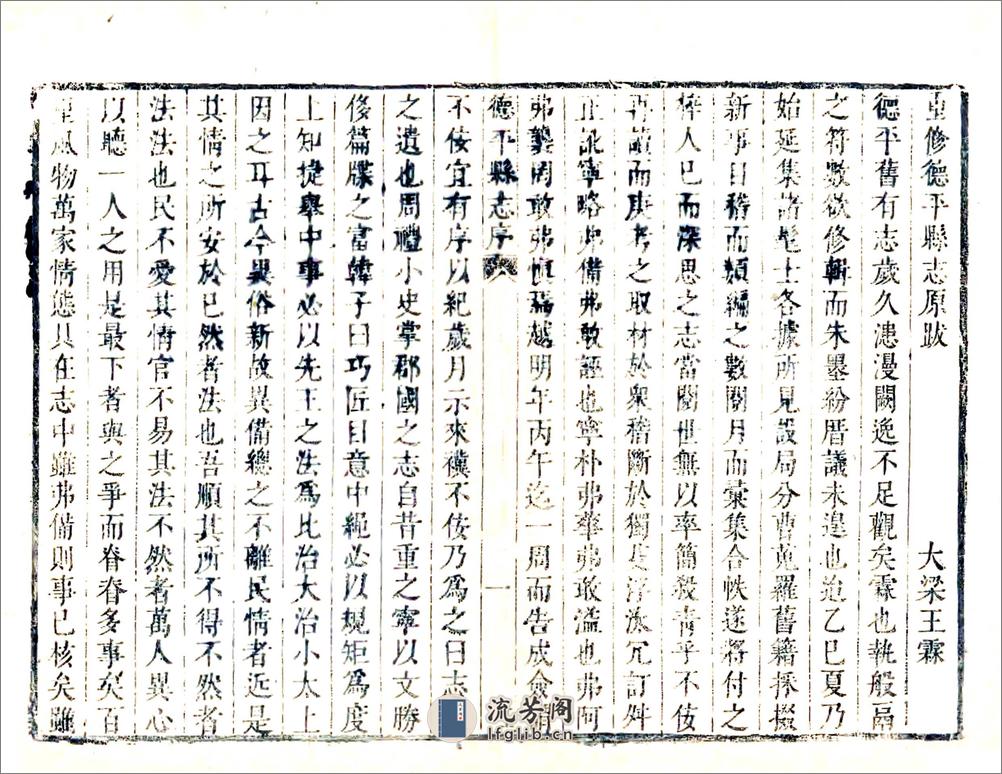 重修德平縣志原跋
大梁王霖
德平舊有志歲久漶漫闕逸不足觀矣霖也執般鬲
之符數欲修輯而朱墨紛厝議未遑也迨乙巳夏乃
始延集諸髦士各據所見設局分曹蒐羅舊籍採掇
新事日稽而類編之數閱月而彙集合帙遂將付之
梓人已而深思之志當關世無以率簡殺青乎不佞
再讀而庚考之取材於衆稽斷於獨是浮汰冗訂舛
正訛寧略弗備弗敢誣也寧朴弗華弗敢溢也弗阿
弗襲罔敢弗慎焉越明年丙午迄一周而告成僉謂
德平縣志序 一
不佞宜有序以紀歲月示來禩不佞乃爲之曰志
之遺也周禮小史掌郡國之志自昔重之寧以文勝
俊篇牒之富韓子曰巧匠目意中繩必以規矩爲度
上知捷舉中事必以先王之法爲比治大治小太上
因之耳古今異俗新故異備總之不離民情者近是
其情之所安於已然者法也吾順其所不得不然者
法法也民不愛其情官不易其法不然者萬人異心
以聽一人之用是最下者與之爭而眷眷多事矣百
里風物萬家情態具在志中雖弗備則事已核矣雖
流芳閣
lfglib.cn